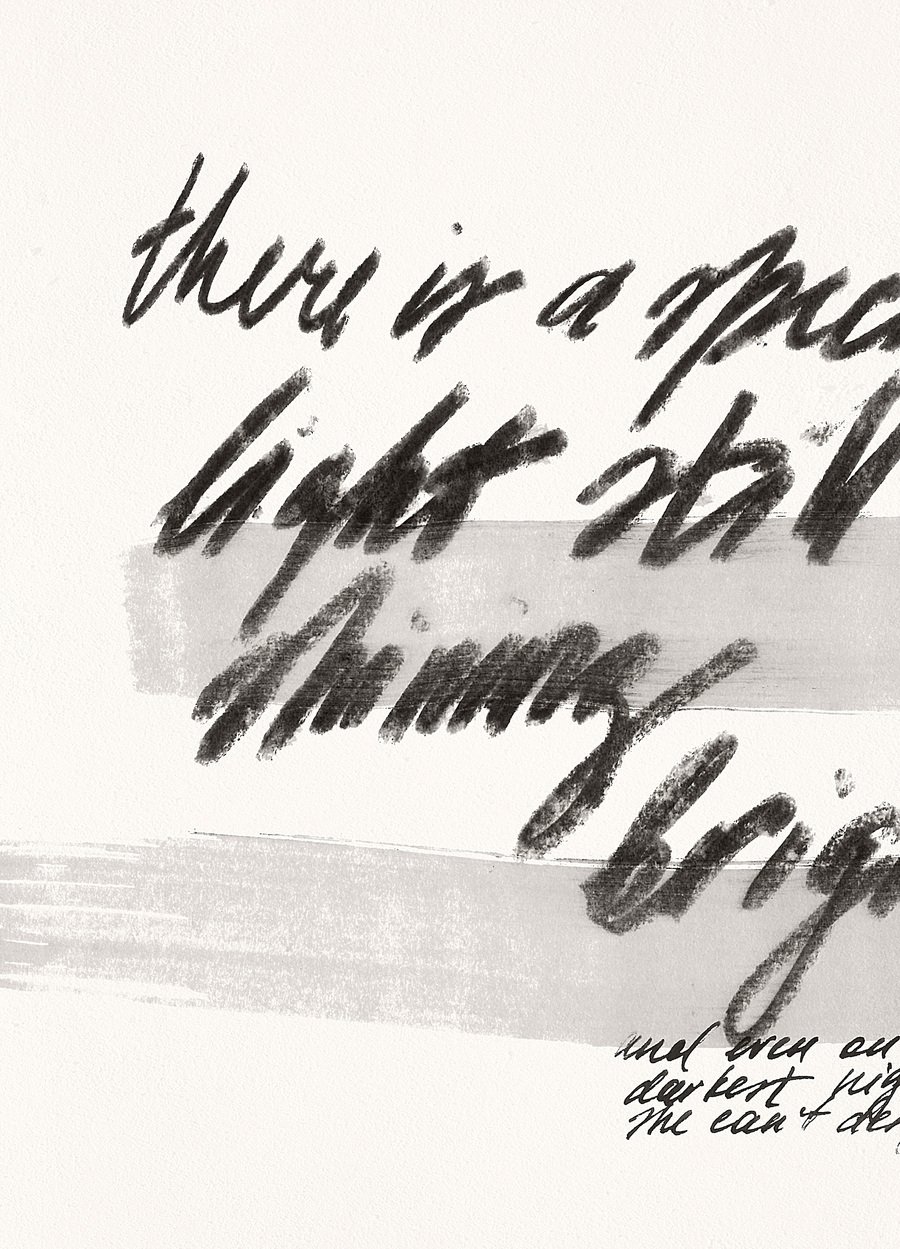 there is a spec
light still
shining
brig
and even on
darkest nig
she can't den